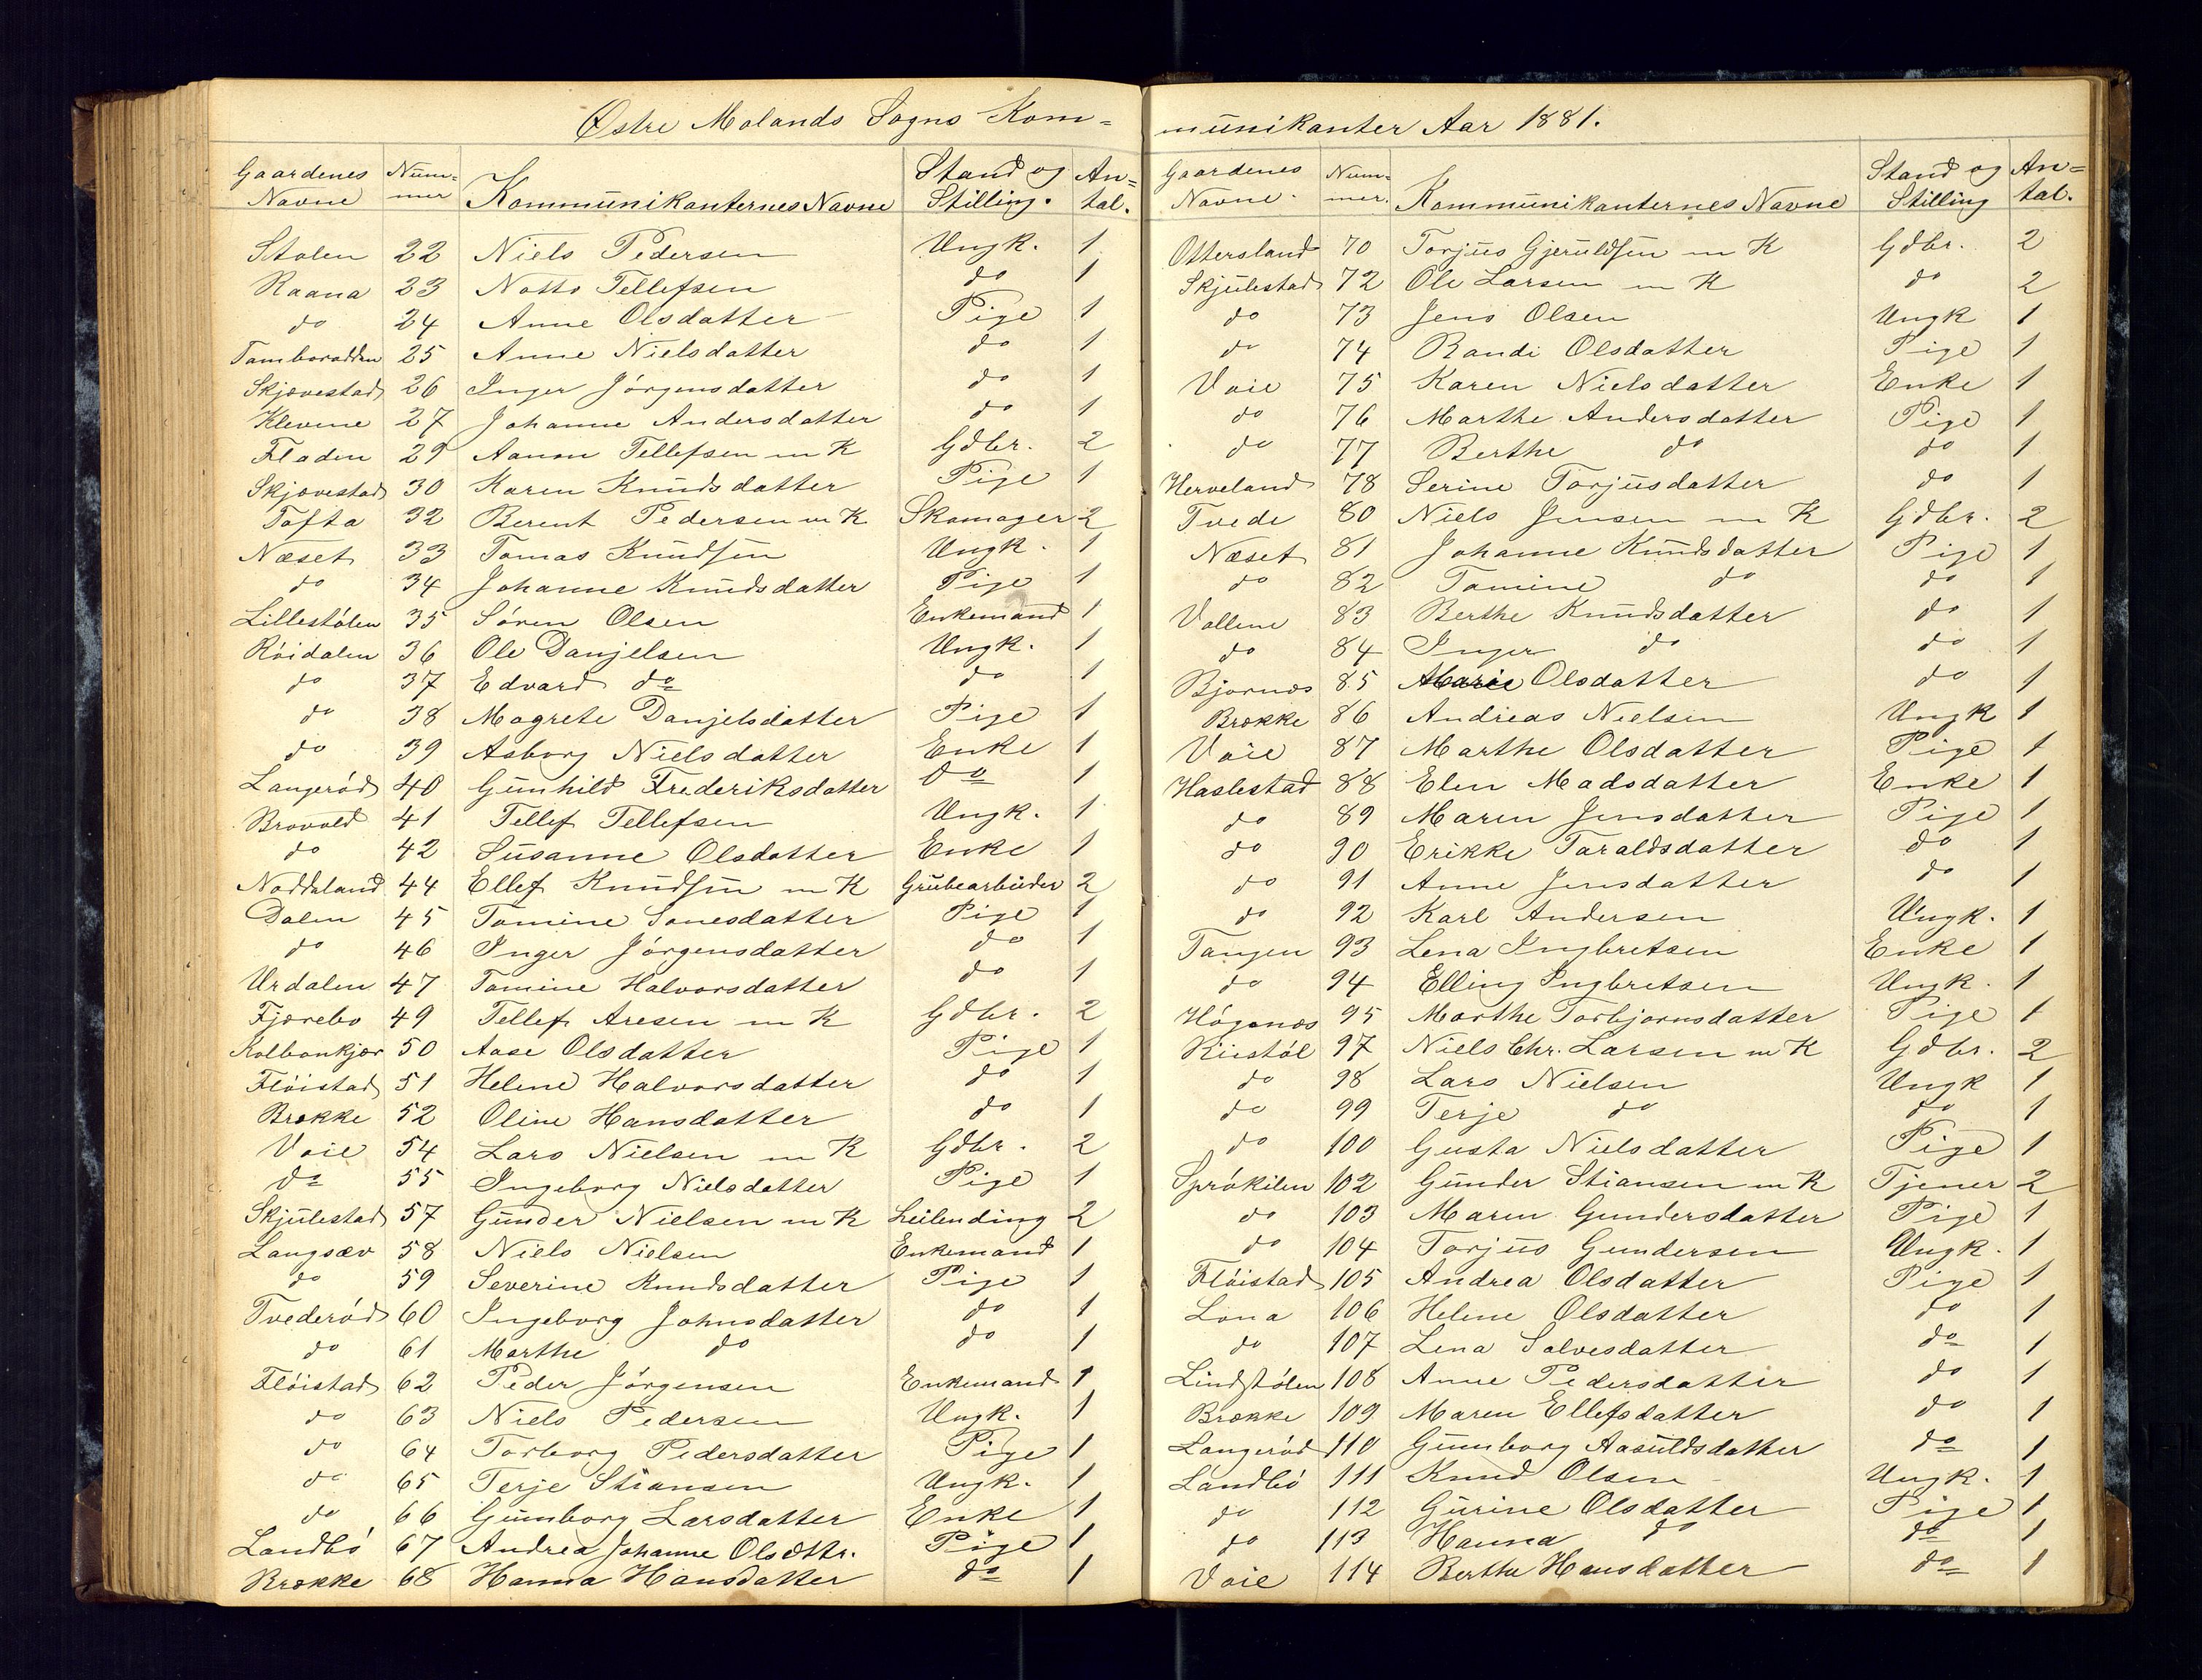 Østre Molands Sogns Kom=
Gaardenes Navne Num=mer Kommunikanternes Navne Stand og Stilling. An=tal.
Stølen 22 Niels Pedersen Ungk. 1
Raana 23 Notto Tellefsen do 1
do 24 Anne Olsdatter Pige 1
Tamborodden 25 Anne Nielsdatter do 1
Skjævestad 26 Inger Jörgensdatter do 1
Klevene 27 Johanne Andersdatter do 1
Fladen 29 Aanon Tellefsen m K Gdbr. 2
Skjævestad 30 Karen Knudsdatter Pige 1
Tofta 32 Berent Pedersen m K Skomager 2
Næset 33 Tomas Knudsen Ungk. 1
do 34 Johanne Knudsdatter Pige 1
Lillestólen 35 Sóren Olsen Enkemand 1
Róidalen 36 Ole Danjelsen Ungk. 1
do 37 Edvard do do 1
do 38 Magrete Danjelsdatter Pige 1
do 39 Asborg Nielsdatter Enke 1
Langeród 40 Gunhild Frederiksdatter do 1
Brovold 41 Tellef Tellefsen Ungk. 1
do 42 Susanne Olsdatter Enke 1
Noddeland 44 Ellef Knudsen m K Grubearbeider 2
Dalen 45 Tomine Sonesdatter Pige 1
do 46 Inger Jörgensdatter do 1
Urdalen 47 Tomine Halvorsdatter do 1
Fjærebo 49 Tellef Aresen m K Gdbr. 2
Kolbonkjær 50 Aase Olsdatter Pige 1
Flóistad 51 Helene Halvorsdatter do 1
Brække 52 Oline Hansdatter do 1
Voie 54 Lars Nielsen m K Gdbr. 2
do 55 Ingeborg Nielsdatter Pige 1
Skjulestad 57 Gunder Nielsen m K Leilending 2
Langsæv 58 Niels Nielsen Enkemand 1
do 59 Severine Knudsdatter Pige 1
Tvederód 60 Ingeborg Johnsdatter do 1
do 61 Marthe do do 1
Flóistad 62 Peder Jörgensen Enkemand 1
do 63 Niels Pedersen Ungk. 1
do 64 Torborg Pedersdatter Pige 1
do 65 Terje Stiansen Ungk. 1
do 66 Gunborg Larsdatter Enke 1
Landbó 67 Andrea Johanne Olsdttr. Pige 1
Brække 68 Hanna Hansdatter do 1
munikanter Aar 1881.
Gaardenes Navne. Num=mer. Kommunikanternes Navne Stand og Stilling An=tal.
Ottersland 70 Torjus Gjeruldsen m K Gdbr. 2
Skjulestad 72 Ole Larsen m K do 2
do 73 Jens Olsen Ungk 1
do 74 Randi Olsdatter Pige 1
Voie 75 Karen Nielsdatter Enke 1
do 76 Marthe Andersdatter Pige 1
do 77 Berthe do do 1
Herveland 78 Serine Torjusdatter do 1
Tvede 80 Niels Jensen m K Gdbr. 2
Næset 81 Johanne Knudsdatter Pige 1
do 82 Tomine do do 1
Vollene 83 Berthe Knudsdatter do 1
do 84 Inger do do 1
Bjornæs 85 Marie Olsdatter do 1
Brække 86 Andreas Nielsen Ungk 1
Voie 87 Marthe Olsdatter Pige 1
Haslestad 88 Elen Madsdatter Enke 1
do 89 Maren Jensdatter Pige 1
do 90 Erikke Taraldsdatter do 1
do 91 Anne Jensdatter do 1
do 92 Karl Andersen Ungk. 1
Tangen 93 Lena Ingbretsen Enke 1
do 94 Elling Ingbretsen Ungk. 1
Hógenæs 95 Marthe Torbjornsdatter Pige 1
Riistól 97 Niels Chr. Larsen m K Gdbr. 2
do 98 Lars Nielsen Ungk 1
do 99 Terje do do 1
do 100 Gusta Nielsdatter Pige 1
Sprókilen 102 Gunder Stiansen m K Tjener 2
do 103 Maren Gundersdatter Pige 1
do 104 Torjus Gundersen Ungk. 1
Flóistad 105 Andrea Olsdatter Pige 1
Lona 106 Helene Olsdatter do 1
do 107 Lena Salvesdatter do 1
Lindstólen 108 Anne Pedersdatter do 1
Brække 109 Maren Ellefsdatter do 1
Langeród 110 Gunborg Aasuldsdatter do 1
Landbó 111 Knud Olsen Ungk. 1
do 112 Gurine Olsdatter Pige 1
do 113 Hanna do do 1
Voie 114 Berthe Hansdatter do 1